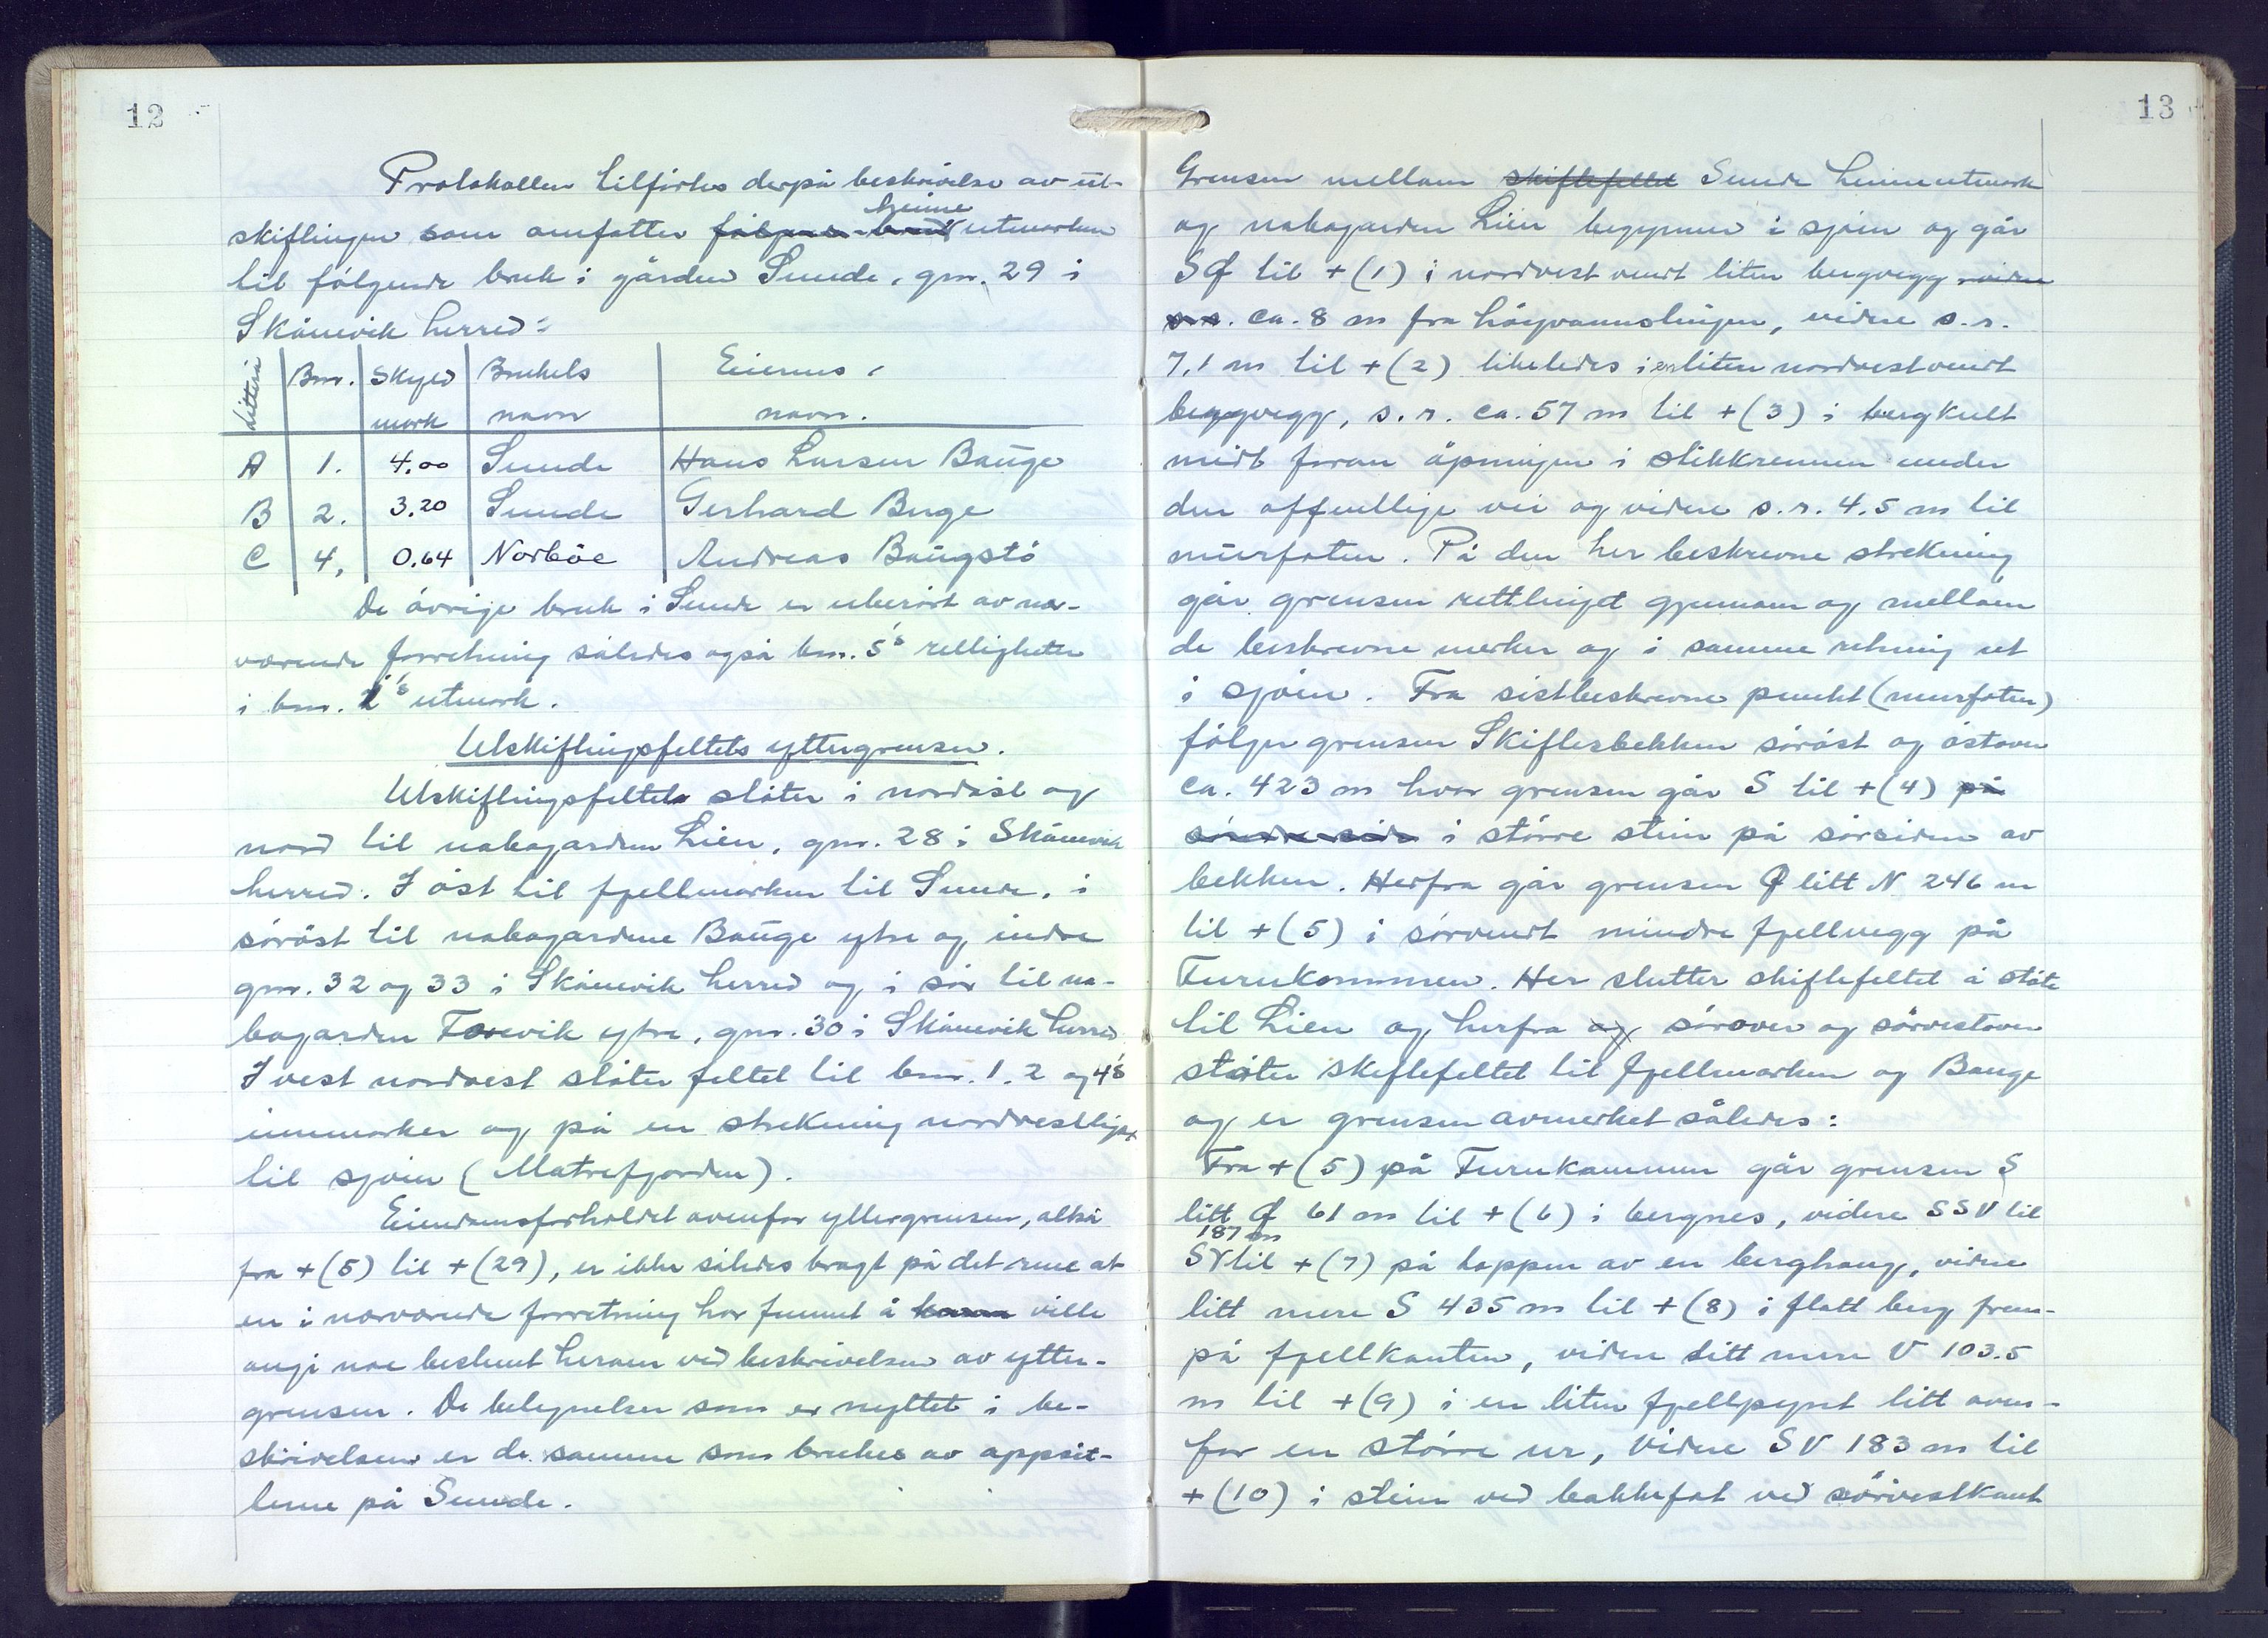 12
Protokollen tilførtes derpå beskrivelse av ut-
skiftingen som omfatter følgende bruk heime utmarken
til følgende bruk i gården Sunde, gnr. 29 i
Skånevik herred:
Littera Bnr. Skyld mark Brukets navn Eierens navn.
A 1. 4.00 Sunde Hans Larsen Bauge
B 2. 3.20 Sunde Gerhard Buge
C 4, 0.64 Norböe Andreas Baugstö
De øvrige bruk i Sunde er uberørt av nær-
værende forretning således også bnr. 5's rettigheter
i bnr. 2's utmark.
Utskiftingsfeltets yttergrenser.
Utskiftingsfeltet støter i nordøst og
nord til nabogarden Lien, gnr. 28 i Skånevik
herred. I øst til fjellmarken til Sunde, i
sørøst til nabogardene Bauge ytre og indre
gnr. 32 og 33 i Skånevik herred og i sør til na-
bogarden Tosevik ytre, gnr. 30 i Skånevik herred
I vest nordvest støter feltet til bnr. 1. 2 og 4's
innmarker og på en strekning nordvestligst
til sjøen (Matrefjorden).
Eiendomsforholdet ovenfor yttergrensen, altså
fra +(5) til +(29), er ikke således bragt på det rene at
en i nærværende forretning har funnet å ville
angi noe bestemt herom ved beskrivelsen av ytter-
grensen. De betegnelser som er nyttet i be-
skrivelsen er de samme som brukes av oppsit-
terne på Sunde.
13
Grensen mellom skiftefeltet Sunde heimeutmark
og nabogarden Lien begynner i sjøen og går
SØ til +(1) i nordvest vendt liten bergvegg videre
s.r. ca. 8 m fra høyvannslinjen, videre s.r.
7,1 m til +(2) likeledes i en liten nordvestvendt
bergvegg, s.r. ca. 57 m til +(3) i bergkult
midt foran åpningen i stikkrennen under
den offentlige vei og videre s.r. 4.5 m til
murfoten. På den her beskrevne strekning
går grensen rettlinjet gjennom og mellom
de beskrevne merker og i samme retning ut
i sjøen. Fra sistbeskrevne punkt (murfoten)
følger grensen Skiftesbekken sørøst og østover
ca. 423 m hvor grensen går S til +(4) på
søndre side i større stein på sørsiden av
bekken. Herfra går grensen Ø litt N 246 m
til +(5) i sørvendt mindre fjellvegg på
Furukommen. Her slutter skiftefeltet å støte
til Lien og herfra og sørover og sørvestover
støter skiftefeltet til fjellmarken og Bauge
og er grensen avmerket således:
Fra +(5) på Furukammen går grensen S
litt Ø 61 m til +(6) i bergnes, videre SSV til
187 m
SV til +(7) på toppen av en berghaug, videre
litt mere S 435 m til +(8) i flatt berg frem-
på fjellkanten, videre litt mere V 103.5
m til +(9) i en liten fjellpynt litt oven-
for en større ur, videre SV 183 m til
+(10) i stein ved bakkefot ved sørvestkant